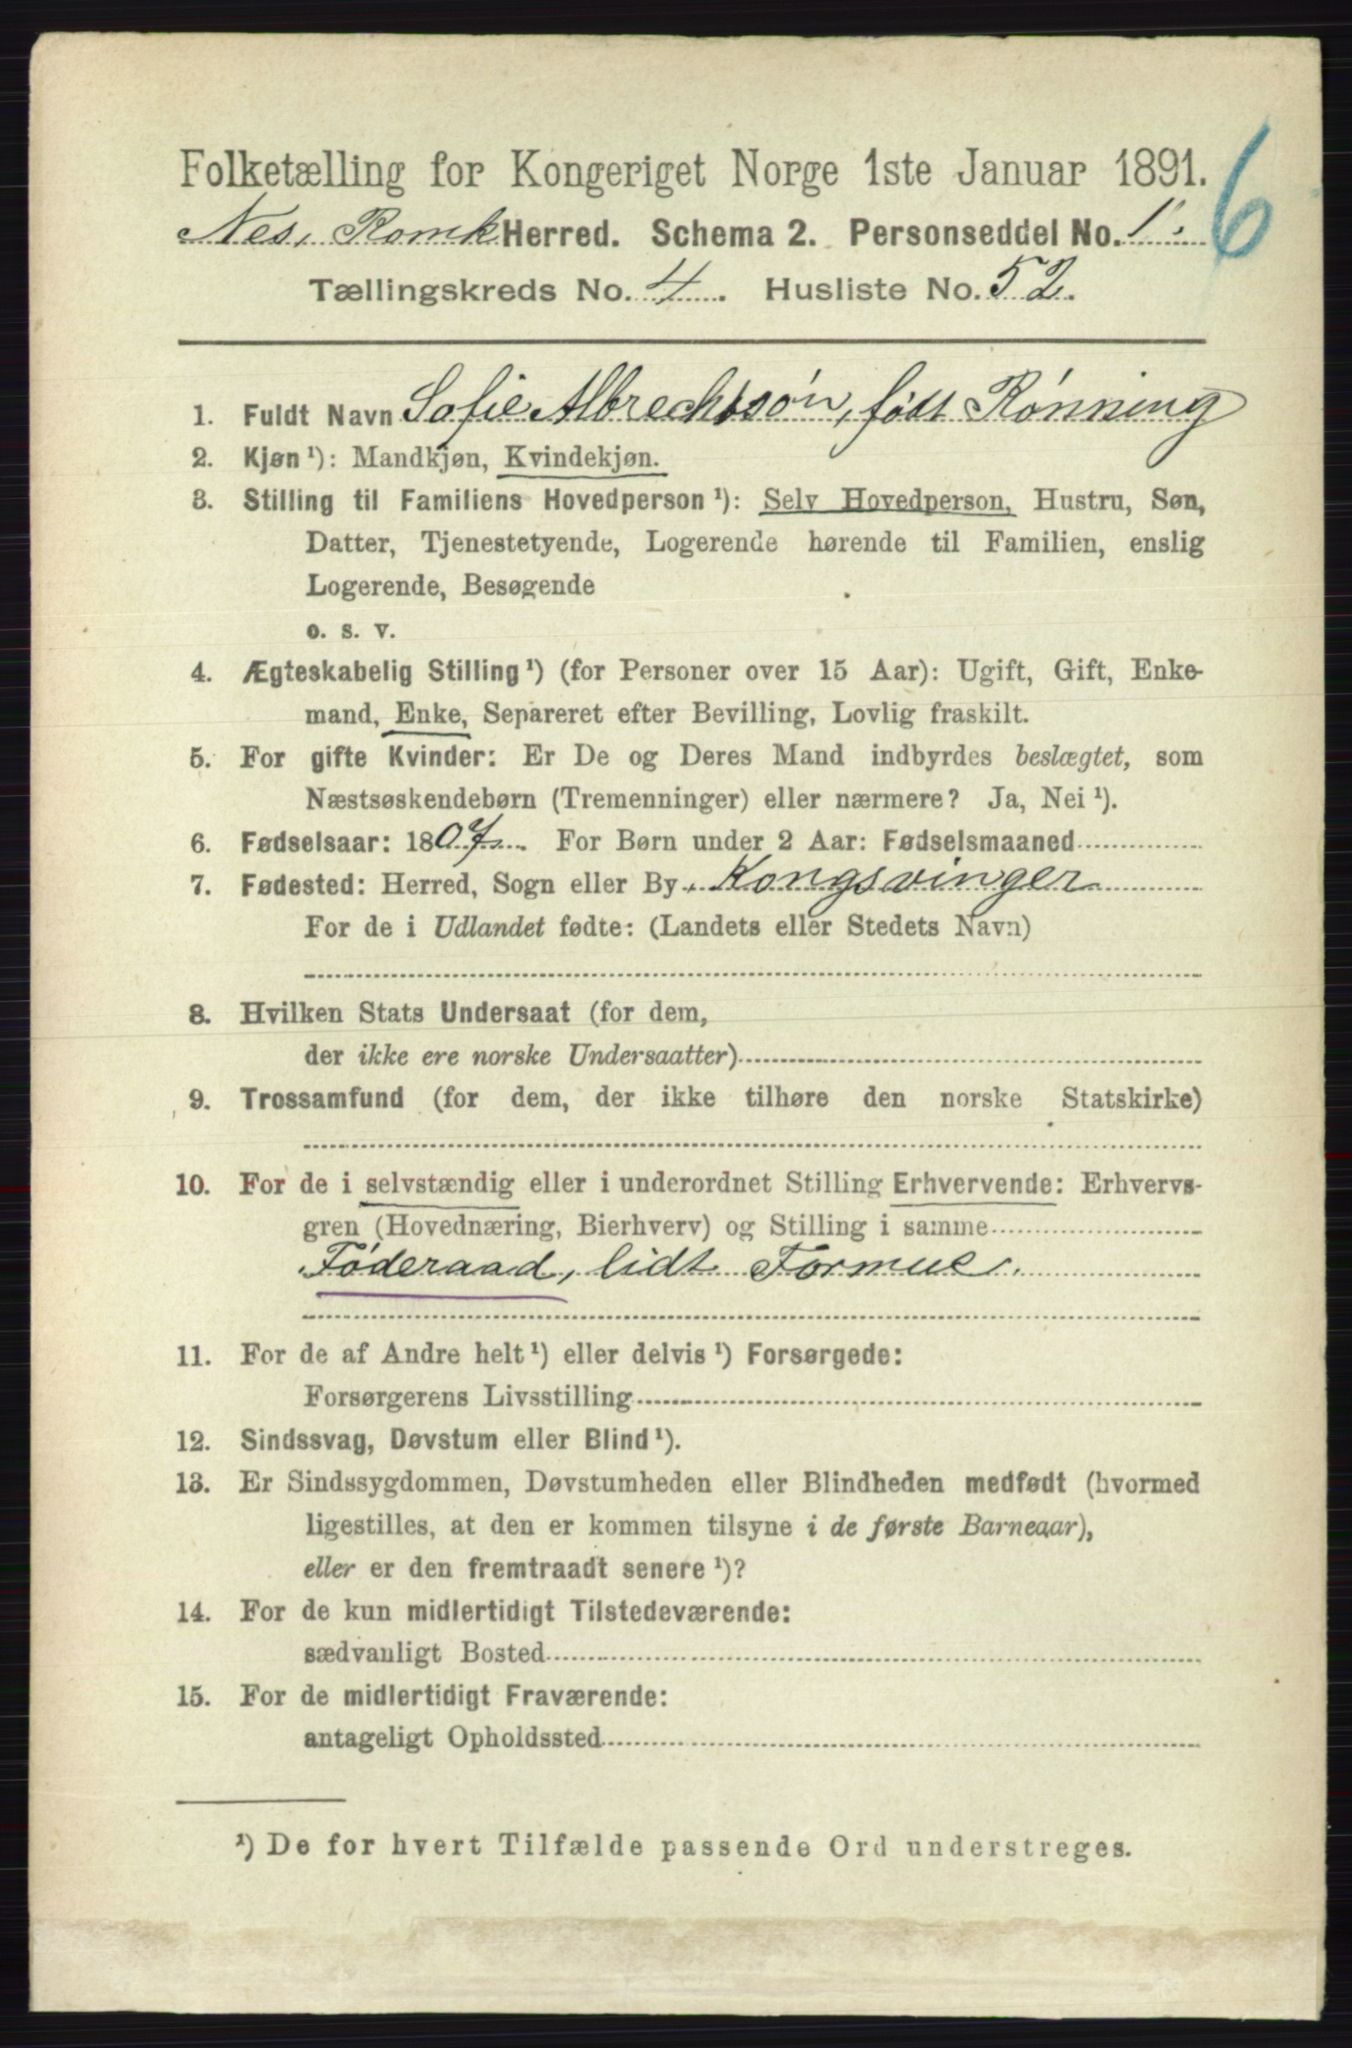 Folketælling for Kongeriget Norge 1ste Januar 1891.
6
Nes, Romk Herred. Schema 2. Personseddel No. 1.
Tællingskreds No. 4. Husliste No. 52.
1. Fuldt Navn Sofie Albrechtsøn, født Rønning
2. Kjøn ¹): Mandkjøn, Kvindekjøn.
3. Stilling til Familiens Hovedperson ¹): Selv Hovedperson, Hustru, Søn,
Datter, Tjenestetyende, Logerende hørende til Familien, enslig
Logerende, Besøgende
o. s. v.
4. Ægteskabelig Stilling ¹) (for Personer over 15 Aar): Ugift, Gift, Enke-
mand, Enke, Separeret efter Bevilling, Lovlig fraskilt.
5. For gifte Kvinder: Er De og Deres Mand indbyrdes beslægtet, som
Næstsøskendebørn (Tremenninger) eller nærmere? Ja, Nei ¹).
6. Fødselsaar: 1807. For Børn under 2 Aar: Fødselsmaaned
7. Fødested: Herred, Sogn eller By Kongsvinger
For de i Udlandet fødte: (Landets eller Stedets Navn)
8. Hvilken Stats Undersaat (for dem,
der ikke ere norske Undersaatter)
9. Trossamfund (for dem, der ikke tilhøre den norske Statskirke)
10. For de i selvstændig eller i underordnet Stilling Erhvervende: Erhvervs-
gren (Hovednæring, Bierhverv) og Stilling i samme
Føderaad, lidt Formue.
11. For de af Andre helt ¹) eller delvis ¹) Forsørgede:
Forsørgerens Livsstilling
12. Sindssvag, Døvstum eller Blind ¹).
13. Er Sindssygdommen, Døvstumheden eller Blindheden medfødt (hvormed
ligestilles, at den er kommen tilsyne i de første Barneaar),
eller er den fremtraadt senere ¹)?
14. For de kun midlertidigt Tilstedeværende:
sædvanligt Bosted
15. For de midlertidigt Fraværende:
antageligt Opholdssted
¹) De for hvert Tilfælde passende Ord understreges.